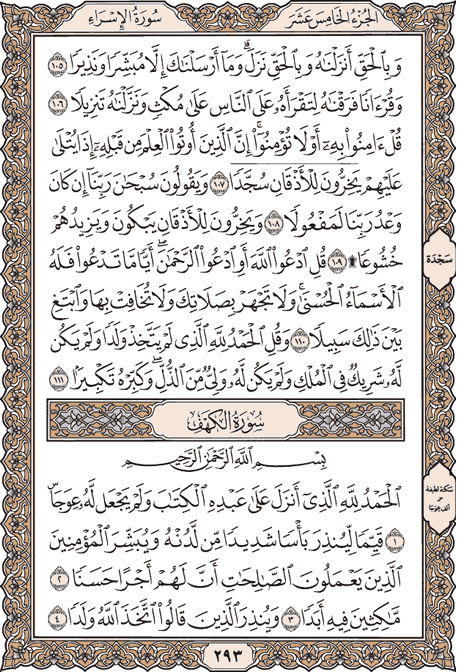 سُورَةُ الإِسْرَاءِ
الجُزْءُ الخَامِسَ عَشَرَ
وَبِالْحَقِّ أَنزَلْنَاهُ وَبِالْحَقِّ نَزَلَ ۗ وَمَا أَرْسَلْنَاكَ إِلَّا مُبَشِّرًا وَنَذِيرًا ١٠٥
وَقُرْءَانًا فَرَقْنَاهُ لِتَقْرَأَهُ عَلَى النَّاسِ عَلَى مُكْثٍ وَنَزَّلْنَاهُ تَنزِيلًا ١٠٦
قُلْ ءَامِنُوا بِهِ أَوْ لَا تُؤْمِنُوا ۚ إِنَّ الَّذِينَ أُوتُوا الْعِلْمَ مِن قَبْلِهِ إِذَا يُتْلَى
عَلَيْهِمْ يَخِرُّونَ لِلْأَذْقَانِ سُجَّدًا ١٠٧ وَيَقُولُونَ سُبْحَانَ رَبِّنَا إِن كَانَ
وَعْدُ رَبِّنَا لَمَفْعُولًا ١٠٨ وَيَخِرُّونَ لِلْأَذْقَانِ يَبْكُونَ وَيَزِيدُهُمْ
خُشُوعًا ۩ ١٠٩ قُلِ ادْعُوا اللَّهَ أَوِ ادْعُوا الرَّحْمَٰنَ ۖ أَيًّا مَّا تَدْعُوا فَلَهُ
الْأَسْمَاءُ الْحُسْنَىٰ ۚ وَلَا تَجْهَرْ بِصَلَاتِكَ وَلَا تُخَافِتْ بِهَا وَابْتَغِ
بَيْنَ ذَٰلِكَ سَبِيلًا ١١٠ وَقُلِ الْحَمْدُ لِلَّهِ الَّذِي لَمْ يَتَّخِذْ وَلَدًا وَلَمْ يَكُن
لَّهُ شَرِيكٌ فِي الْمُلْكِ وَلَمْ يَكُن لَّهُ وَلِيٌّ مِّنَ الذُّلِّ ۖ وَكَبِّرْهُ تَكْبِيرًا ١١١
سَجْدَة
سُورَةُ الكَهْفِ
بِسْمِ اللَّهِ الرَّحْمَٰنِ الرَّحِيمِ
الْحَمْدُ لِلَّهِ الَّذِي أَنزَلَ عَلَىٰ عَبْدِهِ الْكِتَابَ وَلَمْ يَجْعَل لَّهُ عِوَجًا ۜ
١ قَيِّمًا لِّيُنذِرَ بَأْسًا شَدِيدًا مِّن لَّدُنْهُ وَيُبَشِّرَ الْمُؤْمِنِينَ
الَّذِينَ يَعْمَلُونَ الصَّالِحَاتِ أَنَّ لَهُمْ أَجْرًا حَسَنًا ٢
مَّاكِثِينَ فِيهِ أَبَدًا ٣ وَيُنذِرَ الَّذِينَ قَالُوا اتَّخَذَ اللَّهُ وَلَدًا ٤
سكتة لطيفة
على
ألف عوجا
٢٩٣